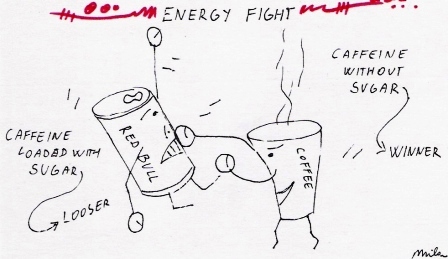 ENERGY FIGHT
CAFFEINE
WITHOUT
SUGAR
WINNER
RED BULL
COFFEE
CAFFEINE
LOADED WITH
SUGAR
LOOSER